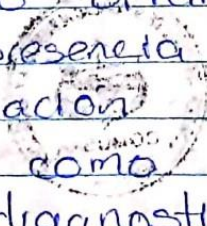 presencia
ación
como
diagnosti